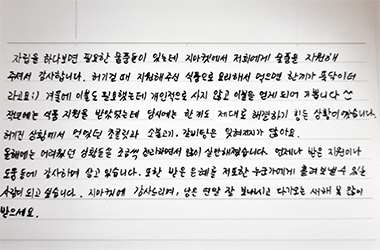 자립을 하다보면 필요한 물품들이 있는데 지아겟에서 저희에게 물품을 지원해
주셔서 감사합니다. 허기질 때 지원해주신 식품으로 요리해서 먹으면 한끼가 뚝딱이더
라고요:) 겨울에 이불도 필요했는데 개인적으로 사지 않고 이불을 얻게 되어 기쁩니다
작년에는 식품 지원을 받았었는데 당시에는 한끼도 제대로 해결하기 힘든 상황이였습니다.
허기진 상황에서 얻었던 초콜릿과 소불고기, 갈비탕은 잊혀지지가 않아요.
올해에는 어려웠던 상황들을 조금씩 관리하면서 많이 실반해졌습니다. 언제나 받은 지원이나
도움들에 감사하며 살고 있습니다. 또한 받은 은혜를 저또한 누군가에게 흘려보낼 수 있는
사람이 되고 싶습니다. 지아겟에 감사드리며, 남은 연말 잘 보내시고 다가오는 새해 복 많이
받으세요.